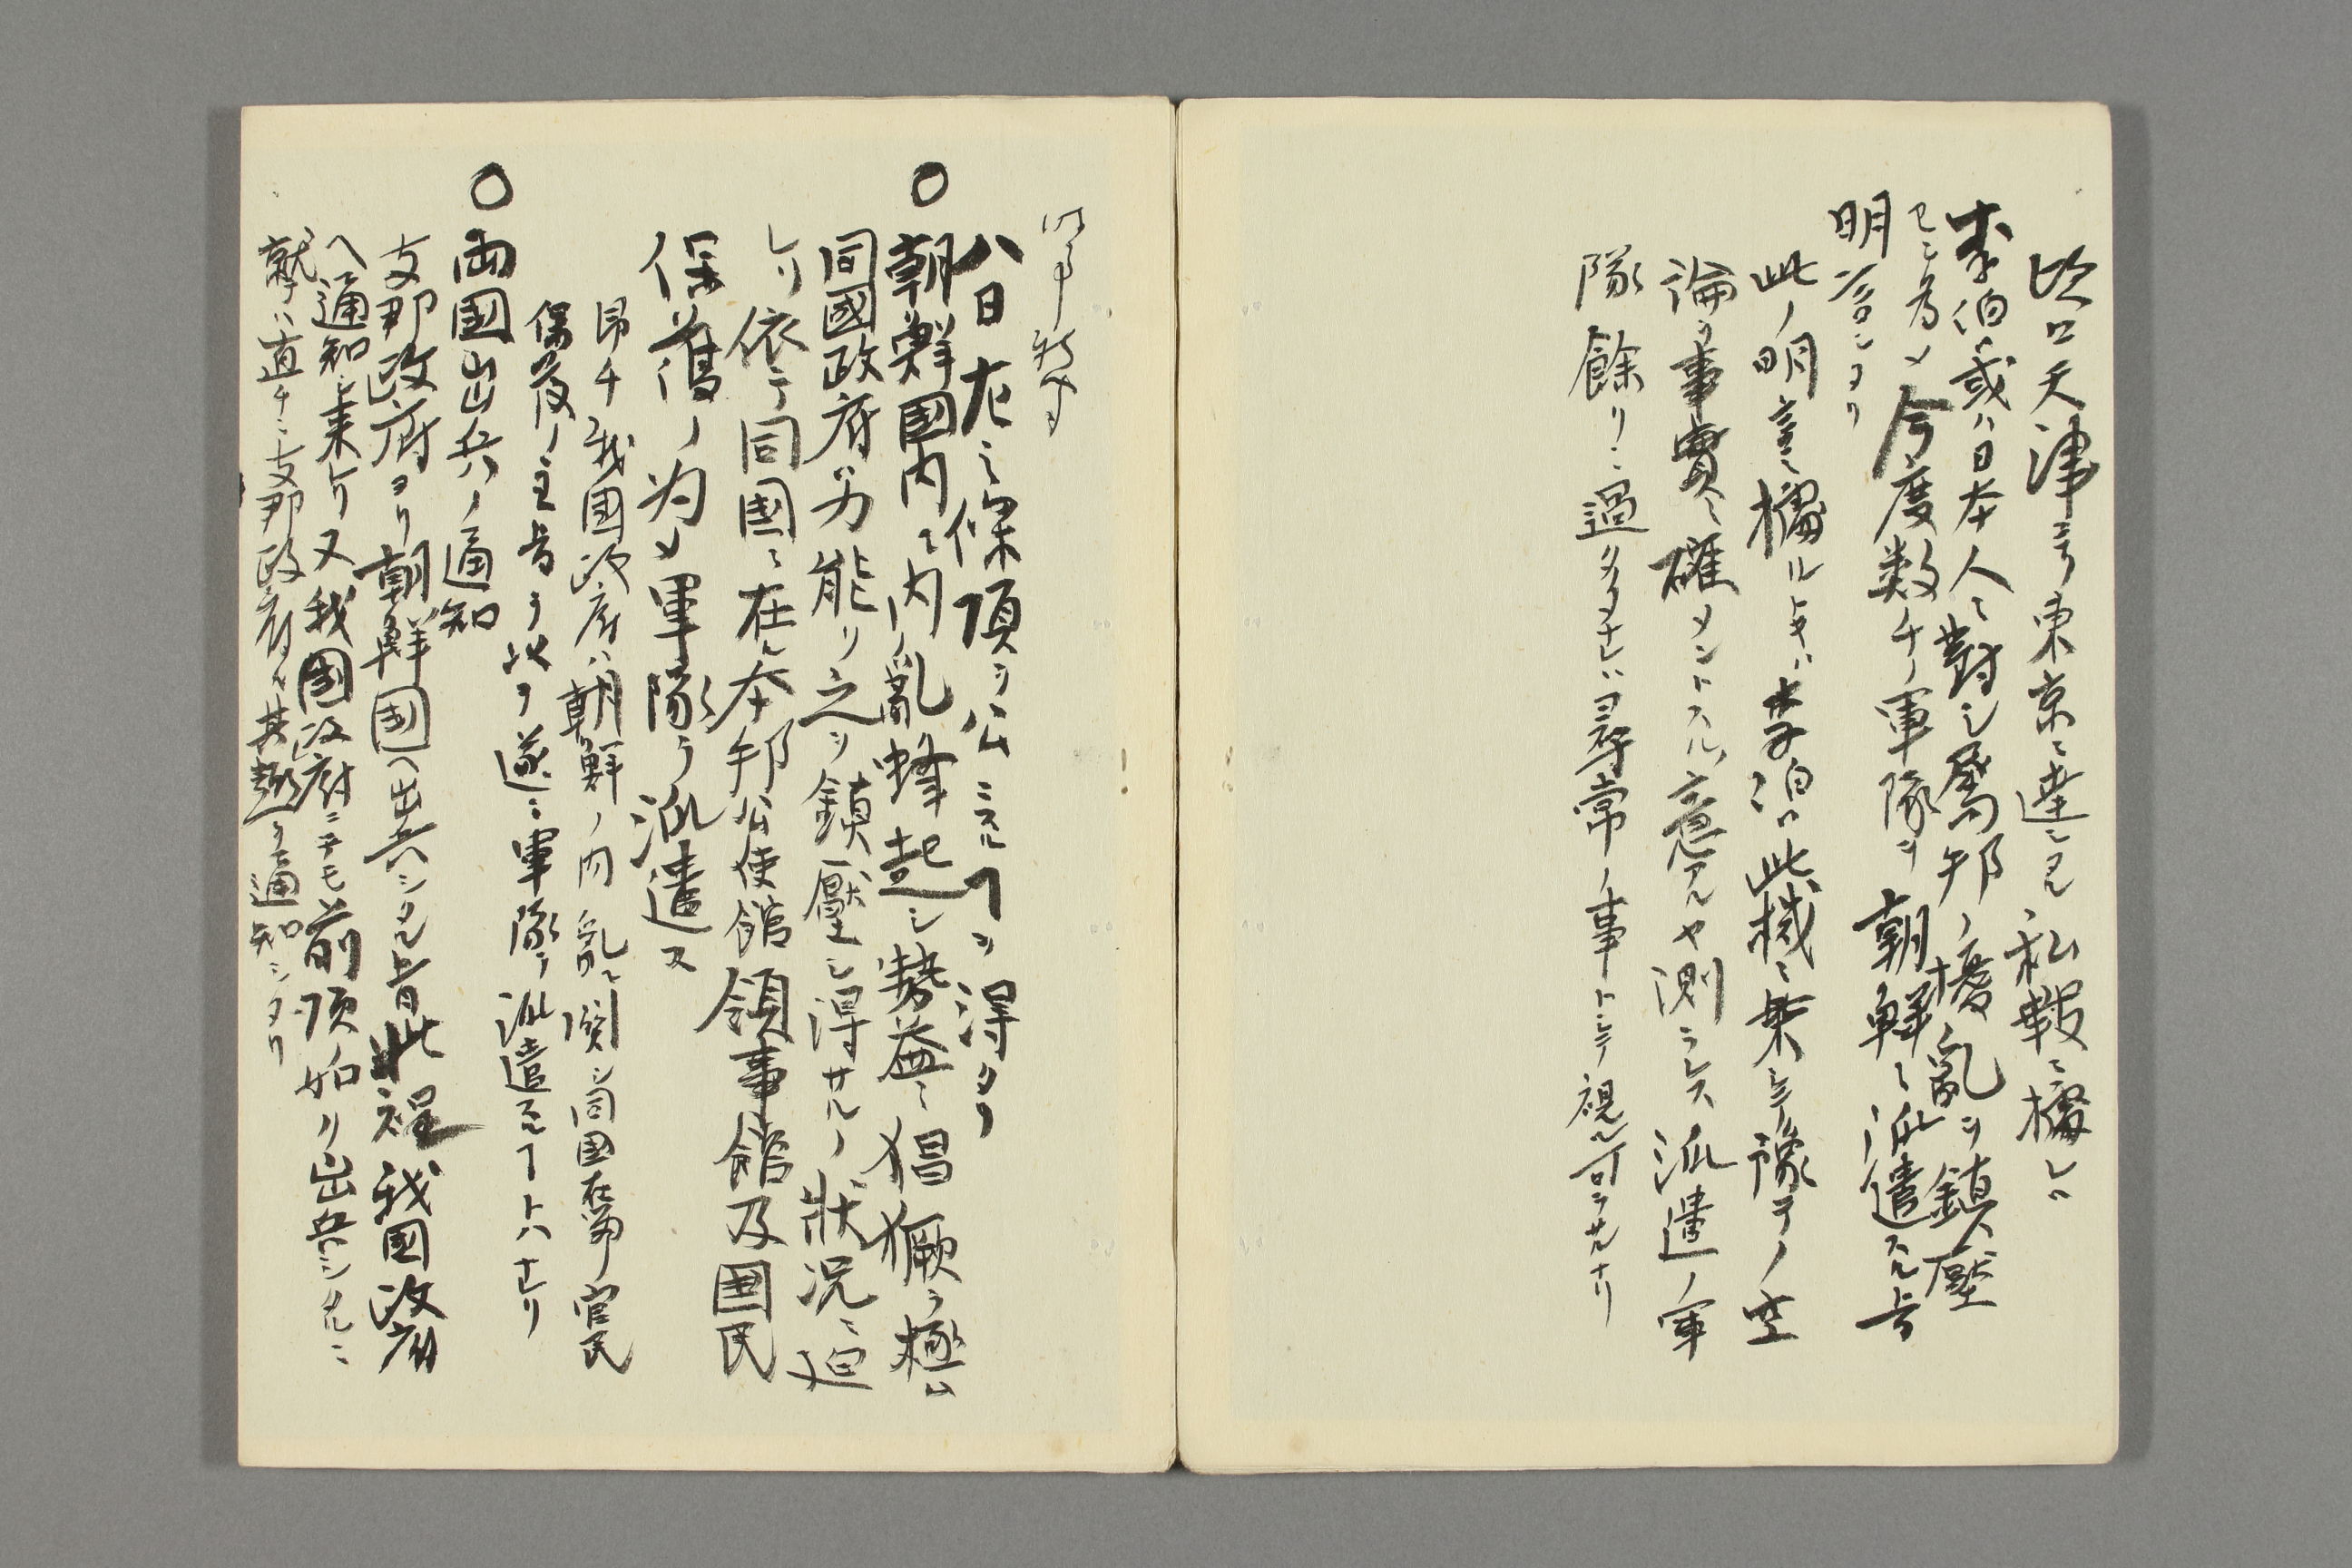 昨日天津ヨリ東京ニ達シタル私報ニ據レハ
李伯ハ或ハ日本人ニ對シ属邦ノ擾亂ヲ鎮壓
センカ為メ今度数千ノ軍隊ヲ朝鮮ニ派遣スル旨
明言シタリ
此ノ明言ニ據ルトキハ李伯ハ此機ニ乗シテ豫テノ空
論ヲ事實ニ確メントスルノ意アルヤ測ラレス派遣ノ軍
隊餘リニ過タクナレハ尋常ノ事トシテ視ル可ラサルナリ
八日左ニ條項ヲ公ニスルヿヲ得タリ
〇朝鮮國内ニ内亂蜂起シ勢益々猖獗ヲ極ム
同國政府ハ力能ク之ヲ鎮壓シ得サルノ狀況ニ迫
レリ依テ同國ニ在ル本邦公使館領事館及国民
保護ノ為メ軍隊ヲ派遣ス
昂チ我國政府ハ朝鮮ノ内乱ニ関シ同國在留ノ官民
保護ノ主旨ヲ以テ遂ニ軍隊ヲ派遣スルヿトハナレリ
〇両國出兵ノ通知
支那政府ヨリ朝鮮国ヘ出兵シタル旨此程我国政府
ヘ通知シ来レリ又我国政府ニテモ前項ノ如ク出兵シタルニ
就テハ直チニ支那政府ヘ其趣ヲ通知シタリ